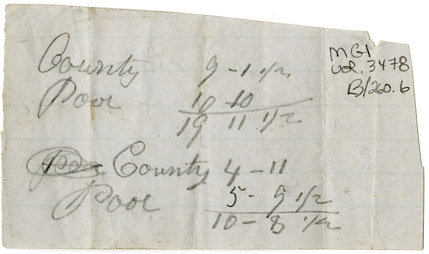 County 9-1 1/2
Poor 10-10
19 11 1/2
County 4-11
Poor 5-9 1/2
10-8 1/2
MG1
vol. 3478
B/260.6